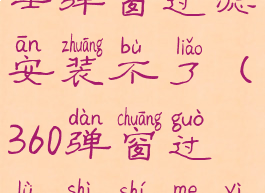 弹窗过滤
ān zhuāng bù liǎo
安装不了（
dàn chuāng guò
360弹窗过
lǜ shì shí me yì